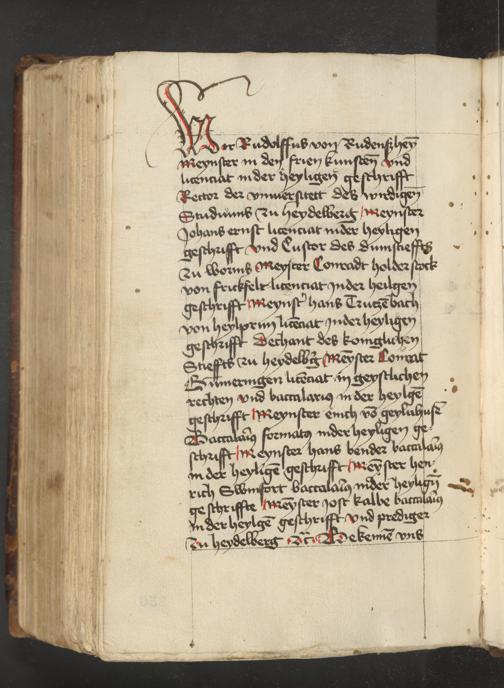 Wir Rudolffus von Rudenßheȳ
Meynster in den frien kunsten vnd
licenciat in der heyligen geschrifft
Rector der vniuersitett des wirdigen
Studiums zu heydelberg Meynster
Johans ernst licenciat in der heyligen
geschrifft vnd Custor des dumstieffts
zu worms Meyster Conradt holderstock
von frickfelt licenciat Jnder heilgen
geschrifft Meynst' hans Trutzēbach
von heylpriin licēciat Jnder heyligen
geschrifft Dechant des koniglichen
Stieffts zu heydelb'g Meyster Conrat
licenciat in geystlichen
rechten vnd baccalarius in der heylgē
geschrifft Meynster erich vō geylnhusē
Baccalariꝰ formatꝰ inder heyligen ge-
schrifft Meynster hans bender baccalariꝰ
in der heyligē geschrifft Meyster hen
rich Swinfort baccalariꝰ inder heyligē
geschriffte Meyster Jost kalbe baccalariꝰ
in der heylgē geschrifft vnd prediger
zu heydelberg Bekennē vns